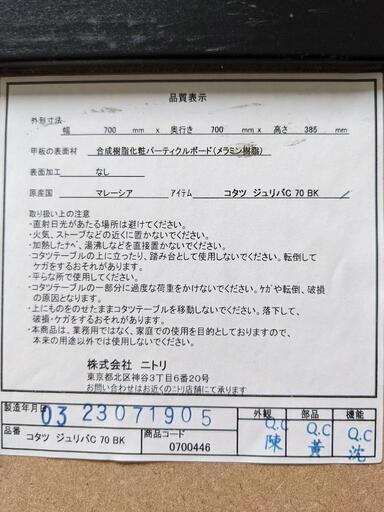 品質表示
外形寸法
幅 700 mm x 奥行き 700 mm x 高さ 385 mm
甲板の表面材 合成樹脂化粧パーティクルボード(メラミン樹脂)
表面加工 なし
原産国 マレーシア アイテム コタツ ジュリパC 70 BK
取り扱い上の注意
・直射日光があたる場所は避けてください。
・火気、ストーブなどの近くに置かないでください。
・加熱したナベ、湯沸しなどを直接置かないでください。
・コタツテーブルの上に立ったり、踏み台として使用しないでください。転倒して
ケガをするおそれがあります。
・平らな所で使用してください。
・コタツテーブルの一部分に過度な荷重をかけないでください。ケガや転倒、破損
の原因となります。
・上にものをのせたままコタツテーブルを移動しないでください。落下して、
破損・ケガをするおそれがあります。
・本商品は、業務用ではなく、家庭での使用を目的としておりますので、
本来の用途以外では使用しないでください。
株式会社 ニトリ
東京都北区神谷3丁目6番20号
お問い合わせはお近くのニトリ店舗にて承ります
製造年月日 03 23071905 外観 部品 機能
品番 コタツ ジュリパC 70 BK 商品コード 0700446
Q.C 陳 Q.C 黄 Q.C 沈